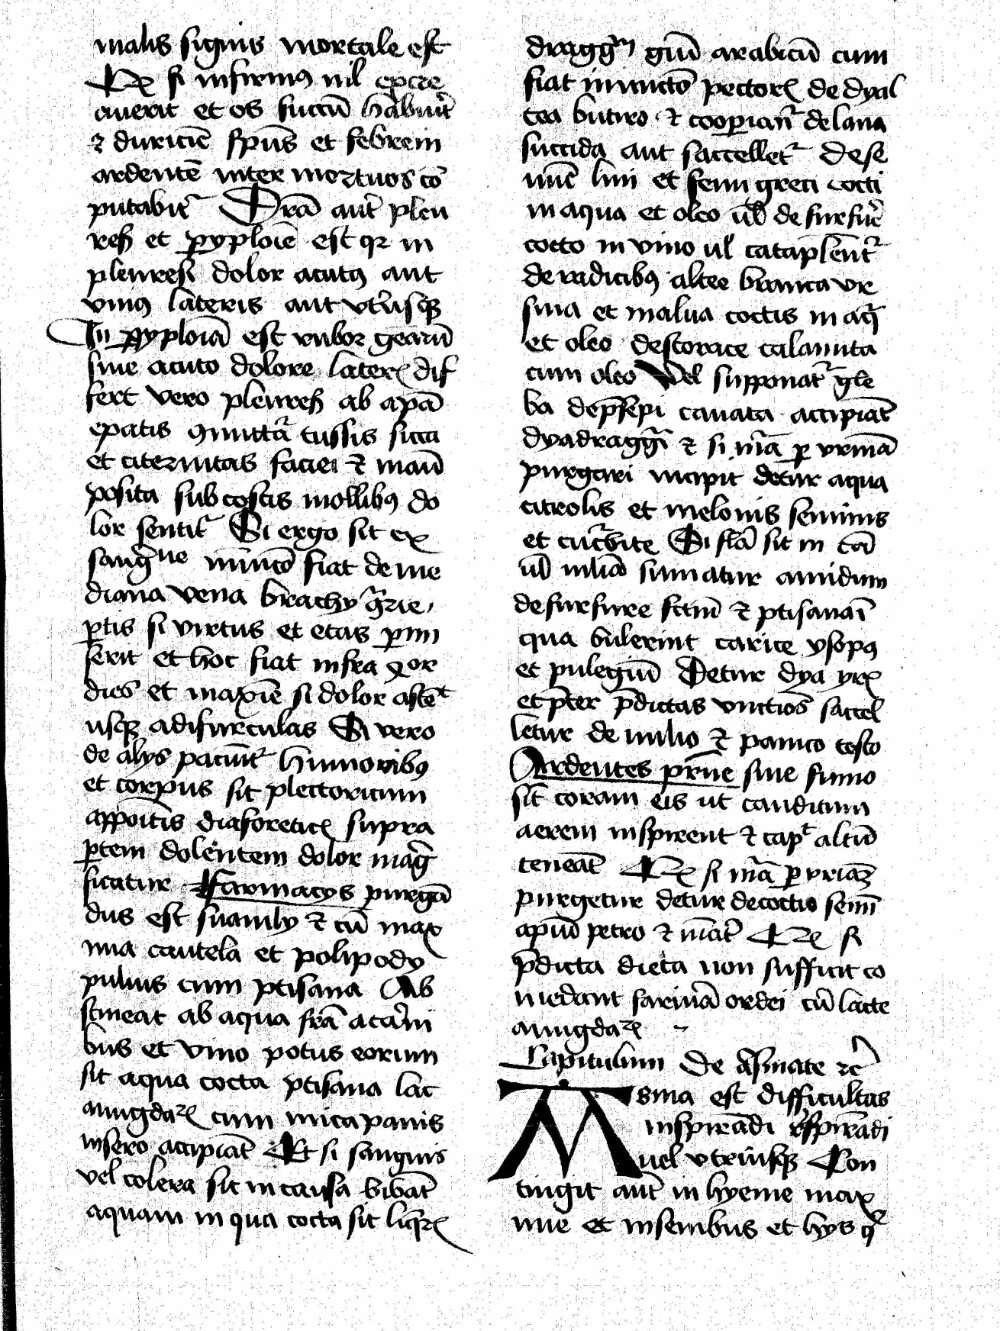 malis signis mortale est
Rx si infirmus nil
auerit et os succu habuit
⁊ duricie spus et febrem
ardente inter mortuos co
putabit Dra aut pleu
resis et pyploie est qr in
pleuresi dolor acutus aut
unius lateris aut utriusque
In pyploia est rubor gearu
sine acuto dolore lateris dif
fert vero pleuresis ab apa
epatis tussis sicca
et citernitas faciei ⁊ manu
posita sub costis mollibus do
lor sentit Si ergo sit ex
sanguine fiat de me
diana vena brachy
ptis si virtus et etas pmi
serit et hoc fiat infra
dies et maxie si dolor
usque ad furculas Si vero
de alys patiunt humoribus
et corpus sit plectoricum
appoitis diaforeticis supra
ptem dolentem dolor mag
ficatur Farmacys purga
dus est suauily ⁊ cu max
ima cautela et polipody
puluis cum ptisana Ab
stineat ab aqua fra a carni
bus et vino potus eorum
sit aqua cocta ptisana lac
amigdar cum mica panis
insero accipiat Et si sanguis
vel colera sit in causa bibat
aquam in qua cocta sit liqr
dragg gui arabicu cum
fiat inuncto pectoris de dyal
tea butiro ⁊ coopiant de lana
succida aut saccellet de se
mine lini et fenu greci cocti
in aqua et oleo ul de furfure
cocto in vino ul cataplsent
de radicibus altee branca ur
sina et malua coctis in aq
et oleo de storace calamita
cum oleo Vel supponat gle
ba de psepi cauata accipiat
dyadragg ⁊ si mia p urina
purgari incipit detur aqua
citrolis et melonis seminis
et cucurbite Si sta sit in ca
ul sumatur amidum
de furfure factu ⁊ ptisana i
qua bulerint carice ysopus
et pulegiu Detur dya yris
et pter pdictas unctios saccel
letur de milio ⁊ panico tosto
Ardentes prune sine fumo
sit coram eis ut canditum
aerem inspirent ⁊ capt altu
teneat Rx si mia p
purgetur detur decoctio semi
apiu petro ⁊ Rx si
pdicta dieta non sufficit co
medant farina ordei cu lacte
amigdar
Capitulum De asmate rc
Asma est difficultas
inspiradi respiradi
uel utriusque Con
tingit aut in hyeme max
ime et in senibus et hys q